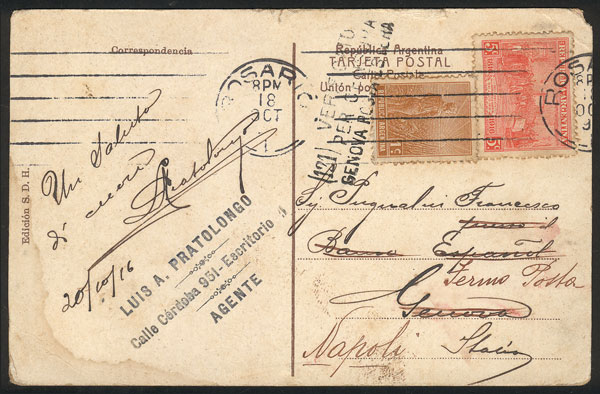 Correspondencia
República Argentina
TARJETA POSTAL
Carte Postale
Unión po
ROSAR
8 PM
18
OCT
1
ROSAR
8 PM
OC
9
VER
PER
GENOVA
(121)
5c
5c
1c
Edición S. D. H.
Un saluto
Pratolongo
20/10/16
LUIS A. PRATOLONGO
Calle Córdoba 951-Escritorio
AGENTE
Sig. Francesco
presso il
Banco Español
Fermo Posta
Genova
Napoli Italia